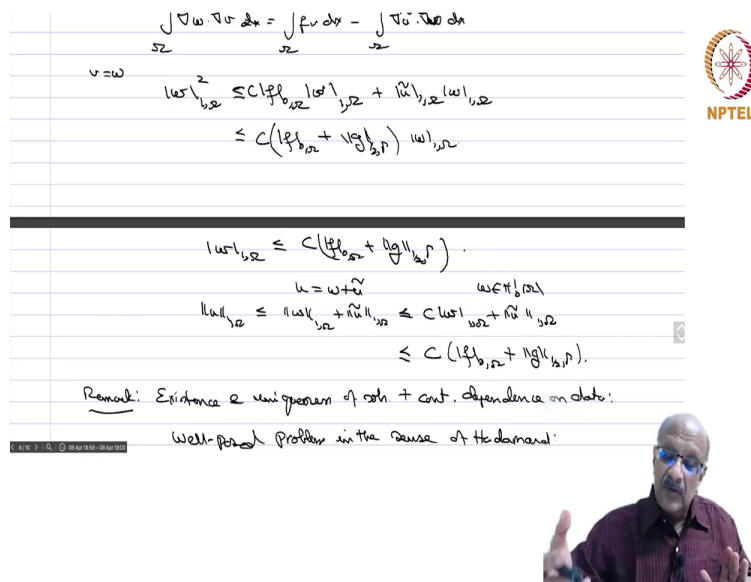 ∫_Ω ∇w·∇v dx = ∫_Ω fv dx − ∫_Ω ∇ũ·∇v dx
v=w
|w|²_{1,Ω} ≤ C|f|_{0,Ω} |w|_{1,Ω} + |ũ|_{1,Ω} |w|_{1,Ω}
≤ C(|f|_{0,Ω} + ‖g‖_{½,Γ}) |w|_{1,Ω}.
NPTEL
|w|_{1,Ω} ≤ C(|f|_{0,Ω} + ‖g‖_{½,Γ}).
u = w+ũ w∈H¹₀(Ω)
‖u‖_{1,Ω} ≤ ‖w‖_{1,Ω} + ‖ũ‖_{1,Ω} ≤ C|w|_{1,Ω} + ‖ũ‖_{1,Ω}
≤ C(|f|_{0,Ω} + ‖g‖_{½,Γ}).
Remark: Existence & uniqueness of soln. + cont. dependence on data:
Well-posed problem in the sense of Hadamard.
8/10 08 Apr 18:56 – 08 Apr 19:00